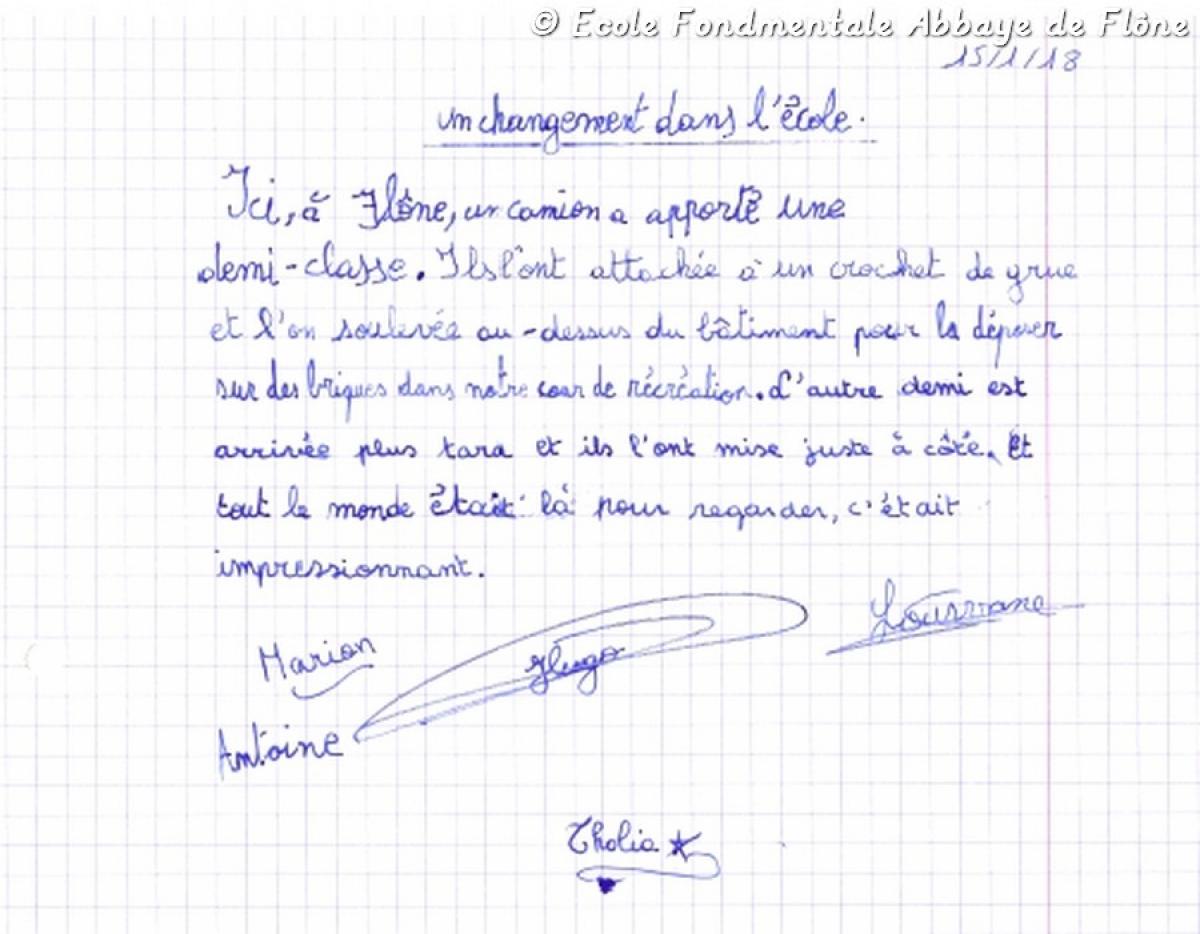 © Ecole Fondmentale Abbaye de Flône
15/1/18
un changement dans l'école.
Ici, à Flône, un camion a apporté une
demi-classe. Ils l'ont attachée à un crochet de grue
et l'on soulevée au-dessus du bâtiment pour la déposer
sur des briques dans notre cour de récréation. L'autre demi est
arrivée plus tard et ils l'ont mise juste à côté. Et
tout le monde était là pour regarder, c'était
impressionnant.
Marion
Hugo
Antoine
Tholia